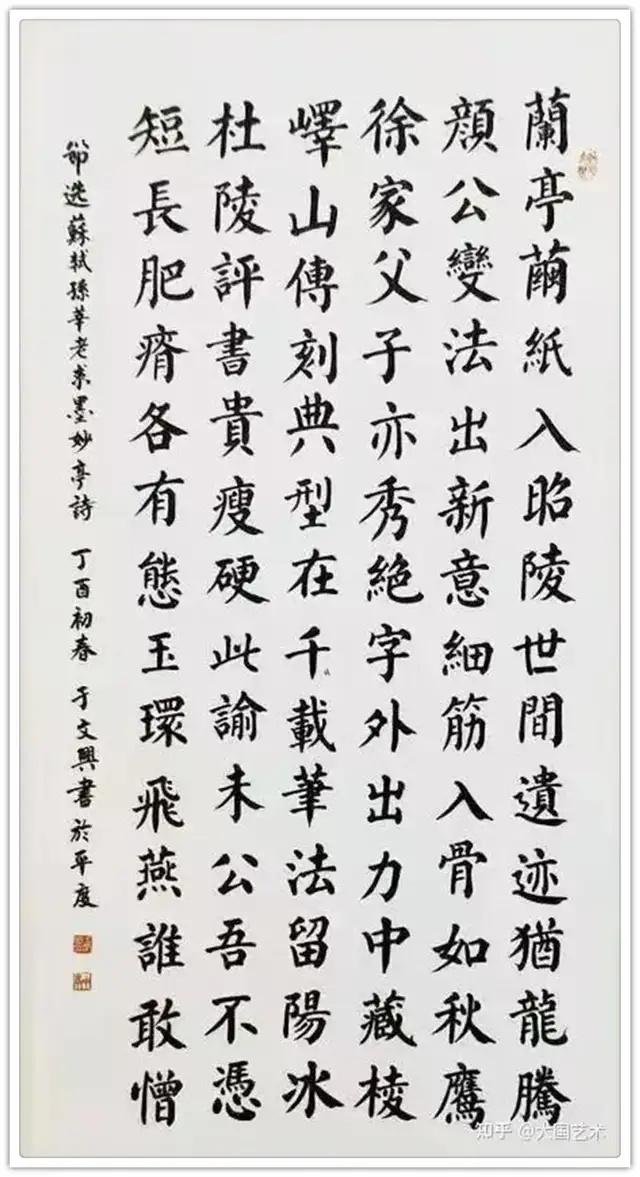 蘭亭繭紙入昭陵世間遺迹猶龍騰
顏公變法出新意細筋入骨如秋鷹
徐家父子亦秀絕字外出力中藏棱
嶧山傳刻典型在千載筆法留陽冰
杜陵評書貴瘦硬此諭未公吾不憑
短長肥瘠各有態玉環飛燕誰敢憎
節选蘇軾孫莘老求墨妙亭詩 丁酉初春 于文興書於平度
知乎 @大国艺术